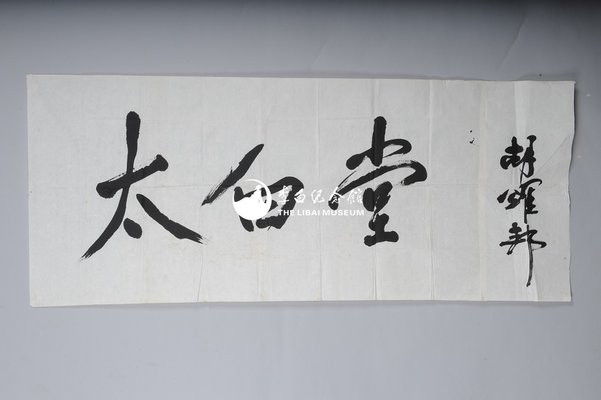 太白堂
胡耀邦
李白纪念馆
THE LIBAI MUSEUM